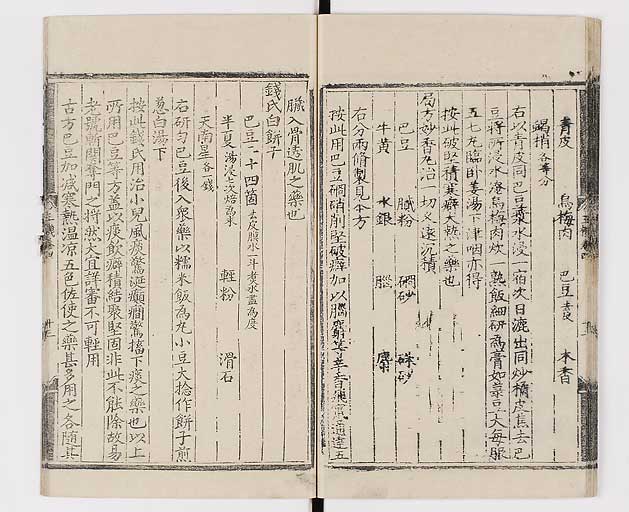 青皮 烏梅肉 巴豆去皮 木香
蝎梢各等分
右以青皮同巴豆漿水浸一宿次日漉出同炒橘皮焦去巴
豆將所浸水澄烏梅肉炊一熟飯細研為膏如菉豆大每服
五七丸臨臥姜湯下津咽亦得
按此破堅積寒癖大熱之藥也
局方妙香丸治一切久遠沉積
巴豆 膩粉 硇砂 硃砂
牛黃 水銀 腦 麝
右分兩脩製見本方
按此用巴豆硇硝削堅破癖加以腦麝等辛香飛竄通達五
臟入骨透肌之藥也
錢氏白餅子
巴豆二十四箇去皮膜水一斗煮水盡為度
半夏湯浸七次焙為末 輕粉 滑石
天南星各一錢
右研勻巴豆後入眾藥以糯米飯為丸小豆大捻作餅子煎
葱白湯下
按此錢氏用治小兒風痰驚涎癲癇驚搐下痰之藥也以上
所用巴豆等方蓋以痰飲癖積結聚堅固非此不能除故易
老號斬關奪門之將然大宜詳審不可輕用
古方巴豆加減寒熱溫凉五色佐使之藥甚多用之各隨其